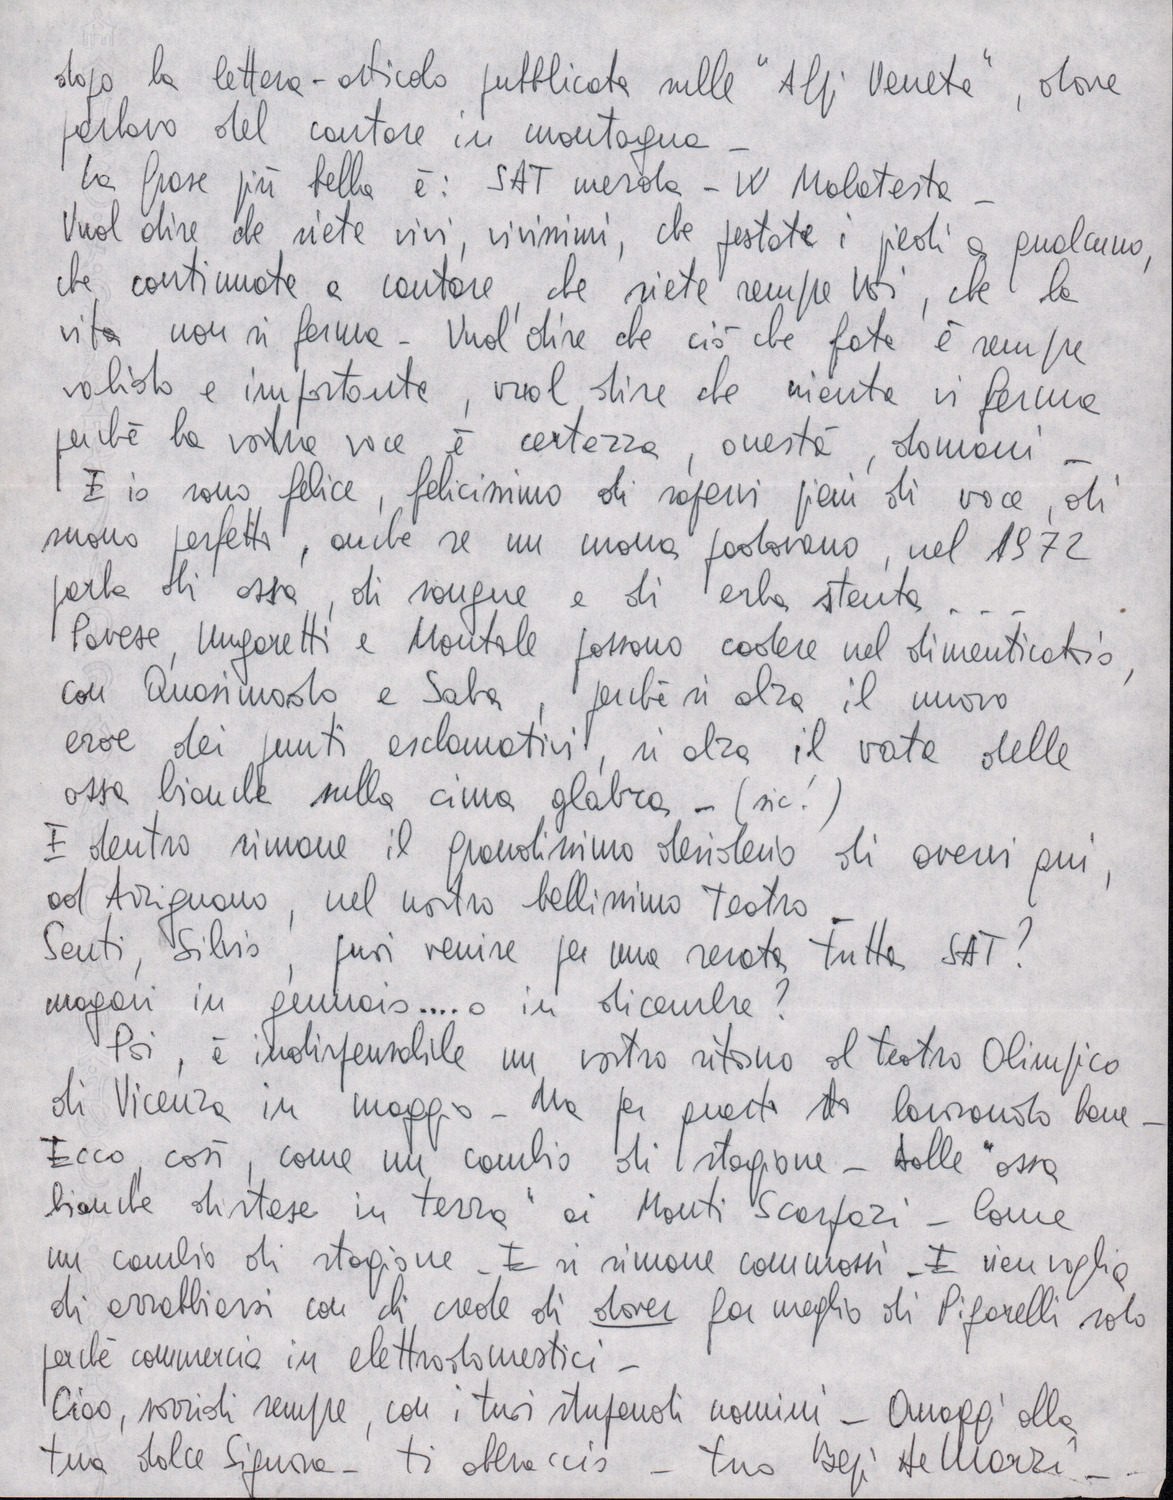 dopo la lettera-articolo pubblicata sulle "Alpi Venete", dove
parlavo del cantare in montagna -
La frase più bella è: SAT merda - W Malatesta -
Vuol dire che siete vivi, vivissimi, che pestate i piedi a qualcuno,
che continuate a cantare, che siete sempre Voi, che la
vita non si ferma - Vuol dire che ciò che fate è sempre
valido e importante, vuol dire che niente vi ferma
perché la vostra voce è certezza, onestà, domani -
E io sono felice, felicissimo di sapervi pieni di voce, di
suono perfetti, anche se un mona padovano, nel 1972
parla di ossa, di sangue e di erba stenta . . .
Pavese, Ungaretti e Montale possono cadere nel dimenticatoio,
con Quasimodo e Saba, perché si alza il nuovo
eroe dei punti esclamativi, si alza il vate delle
ossa bianche sulla cima glabra - (sic!)
E dentro rimane il grandissimo desiderio di avervi qui,
ad Arzignano, nel nostro bellissimo Teatro -
Senti, Silvio, puoi venire per una serata tutta SAT?
magari in gennaio....o in dicembre?
Poi, è indispensabile un vostro ritorno al teatro Olimpico
di Vicenza in maggio - Ma per questo sto lavorando bene -
Ecco, così, come un cambio di stagione - Dalle "ossa
bianche distese in terra" ai Monti Scarpazi - Come
un cambio di stagione - E si rimane commossi - E vien voglia
di arrabbiarsi con chi crede di dover far meglio di Pigarelli solo
perché commercia in elettrodomestici -
Ciao, sorridi sempre, con i tuoi stupendi uomini - Omaggi alla
tua dolce Signora - ti abbraccio - tuo Bepi De Marzi - -